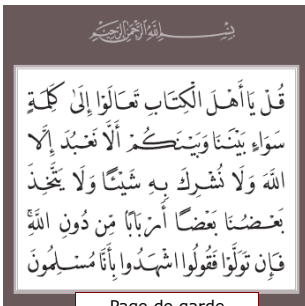 بِسْمِ اللَّهِ الرَّحْمَٰنِ الرَّحِيمِ
قُلْ يَا أَهْلَ الْكِتَابِ تَعَالَوْا إِلَىٰ كَلِمَةٍ
سَوَاءٍ بَيْنَنَا وَبَيْنَكُمْ أَلَّا نَعْبُدَ إِلَّا
اللَّهَ وَلَا نُشْرِكَ بِهِ شَيْئًا وَلَا يَتَّخِذَ
بَعْضُنَا بَعْضًا أَرْبَابًا مِّن دُونِ اللَّهِ ۚ
فَإِن تَوَلَّوْا فَقُولُوا اشْهَدُوا بِأَنَّا مُسْلِمُونَ
Page de garde